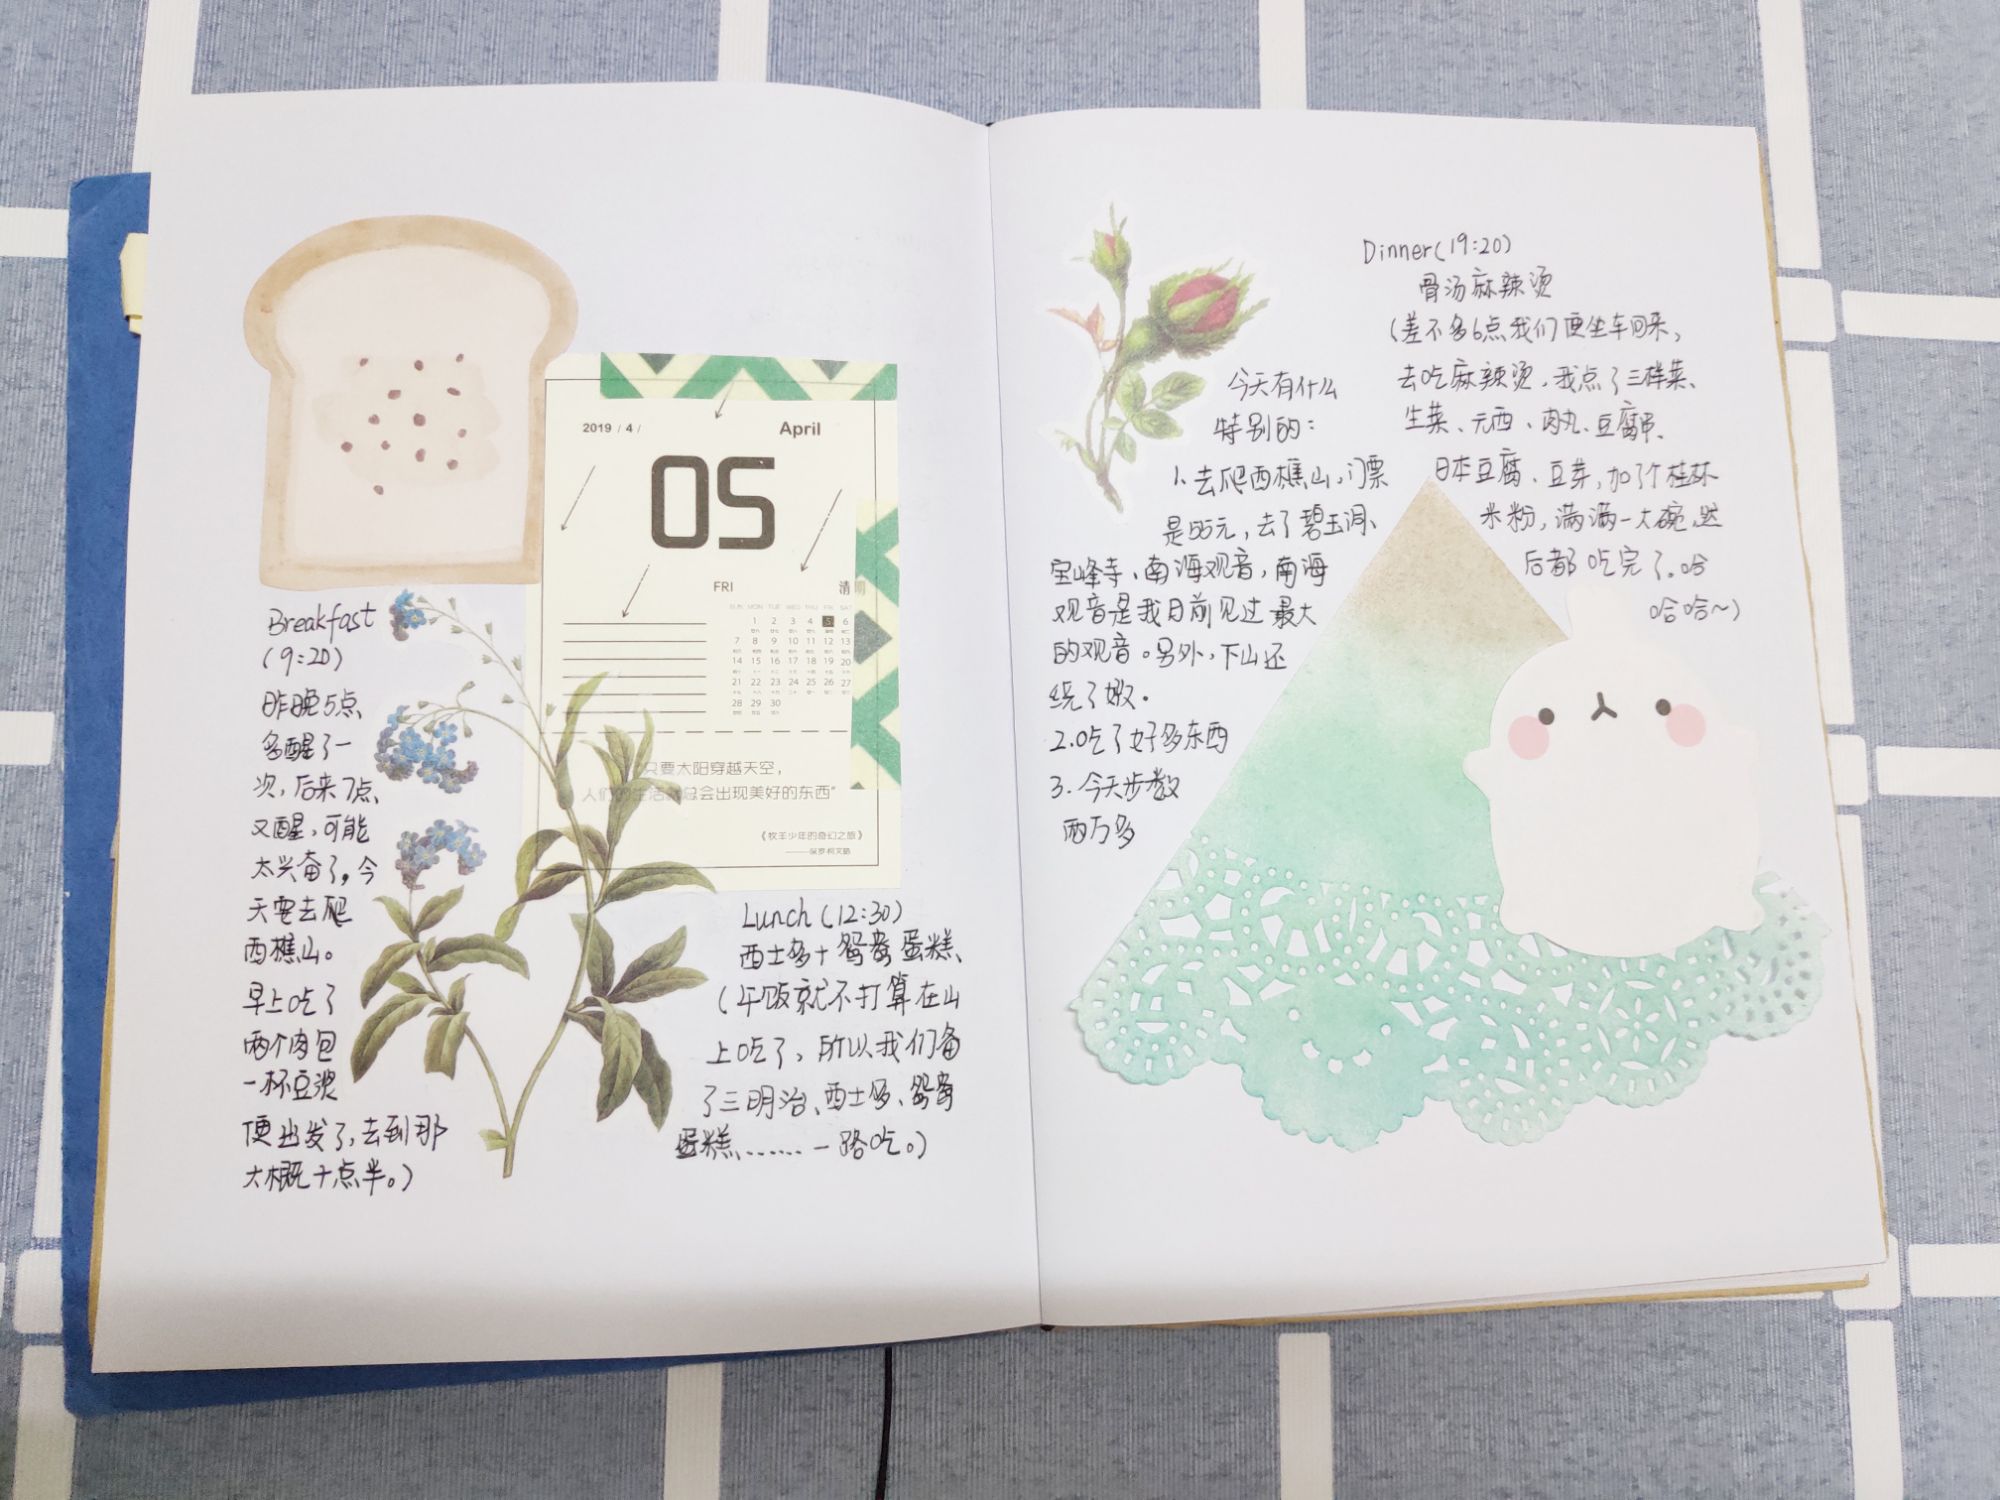 2019 / 4 /
April
05
FRI
清明
SUN MON TUE WED THU FRI SAT
1 2 3 4 5 6
7 8 9 10 11 12 13
14 15 16 17 18 19 20
21 22 23 24 25 26 27
28 29 30
只要太阳穿越天空，
人们的生活就总会出现美好的东西”
《牧羊少年的奇幻之旅》
——保罗·柯艾略
Breakfast
(9:20)
昨晚5点
多醒了一
次，后来7点
又醒，可能
太兴奋了，今
天要去爬
西樵山。
早上吃了
两个肉包
一杯豆浆
便出发了，去到那
大概十点半。）
Lunch (12:30)
西士多+鸳鸯蛋糕、
（午饭就不打算在山
上吃了，所以我们备
了三明治、西士多、鸳鸯
蛋糕、……一路吃。）
今天有什么
特别的：
1、去爬西樵山，门票
是55元，去了碧玉洞、
宝峰寺、南海观音，南海
观音是我目前见过最大
的观音。另外，下山还
绕了
2.吃了好多东西
3.今天步数
两万多
Dinner(19:20)
骨汤麻辣烫
（差不多6点我们便坐车回来，
去吃麻辣烫，我点了三样菜、
生菜、元西、肉丸、豆腐串、
日本豆腐、豆芽，加了个桂林
米粉，满满一大碗，然
后都吃完了。哈
哈哈～）